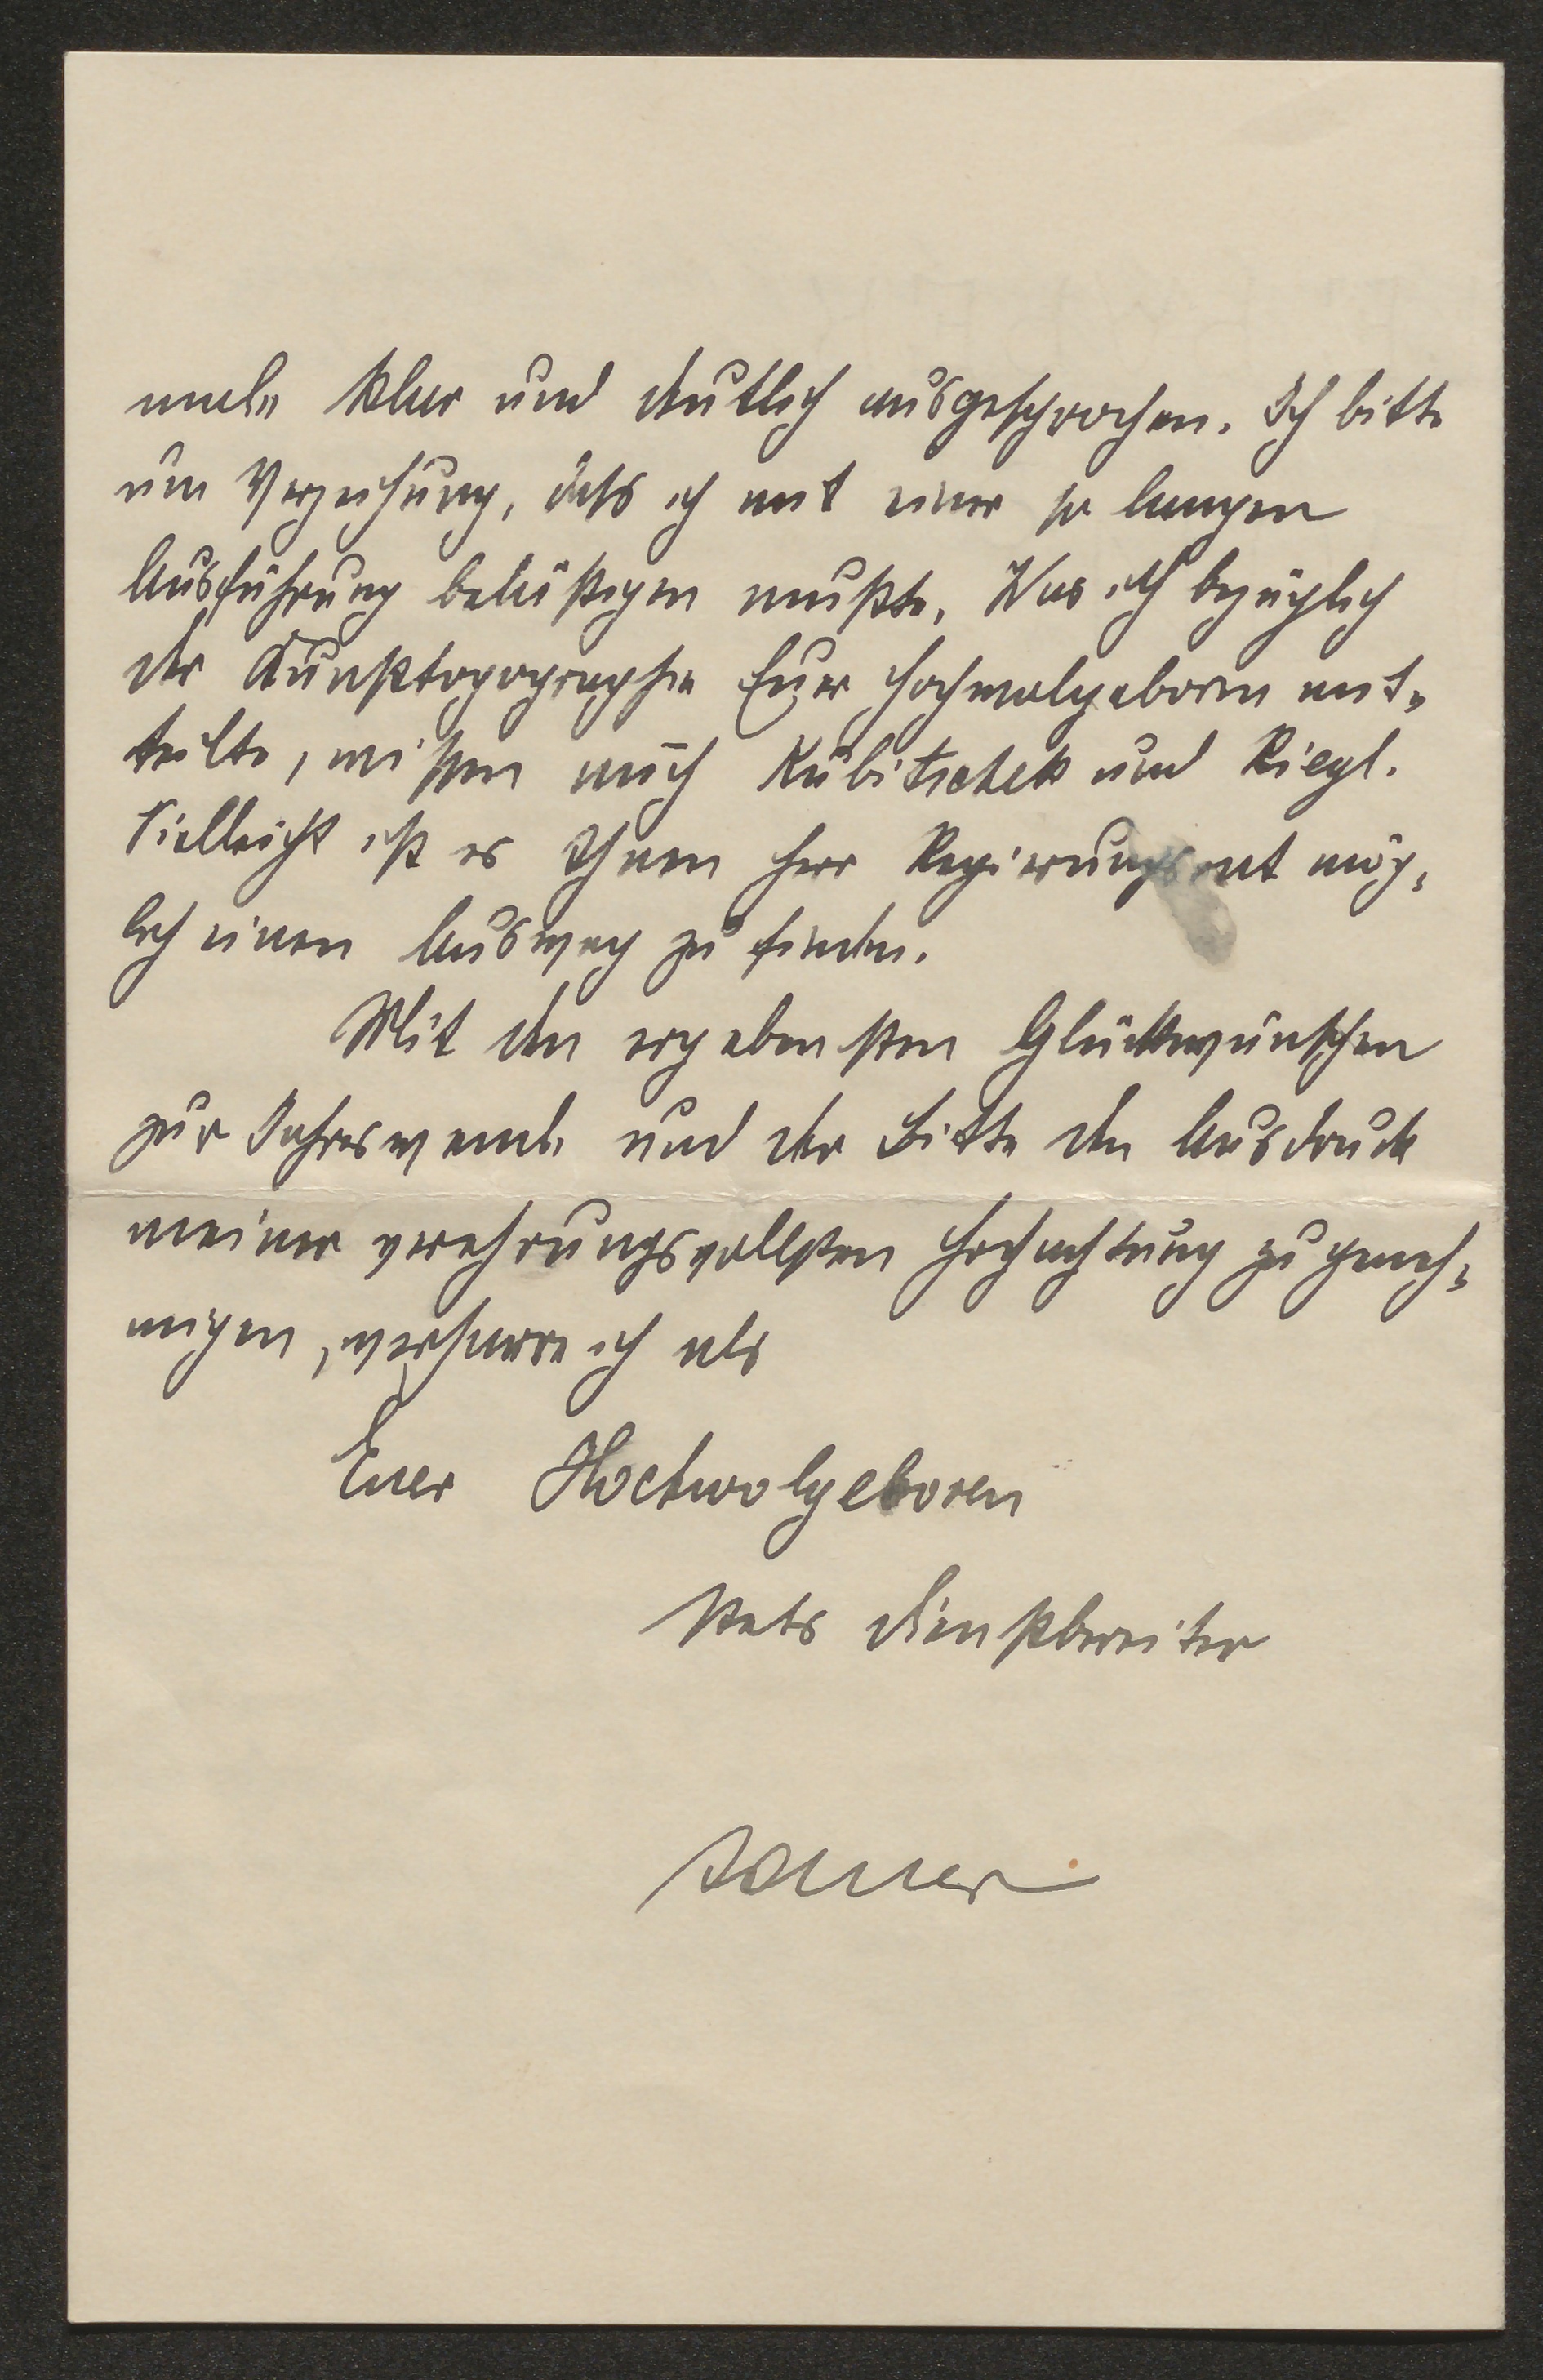 male klar und deutlich ausgesprochen. Ich bitte
um Verzeihung, daß ich mit einer so langen
Ausführung belästigen mußte. Was ich bezüglich
der Kunsttopographie Euer Hochwolgeboren mit-
teilte, wissen auch Kubitschek und Riegl.
Vielleicht ist es Ihnen Herr Regierungsrat mög-
lich einen Ausweg zu finden.
Mit den ergebensten Glückwünschen
zur Jahreswende und der Bitte den Ausdruck
meiner verehrungsvollsten Hochachtung zu geneh-
migen, verharre ich als
Euer Hochwolgeboren
stets dienstbereiter